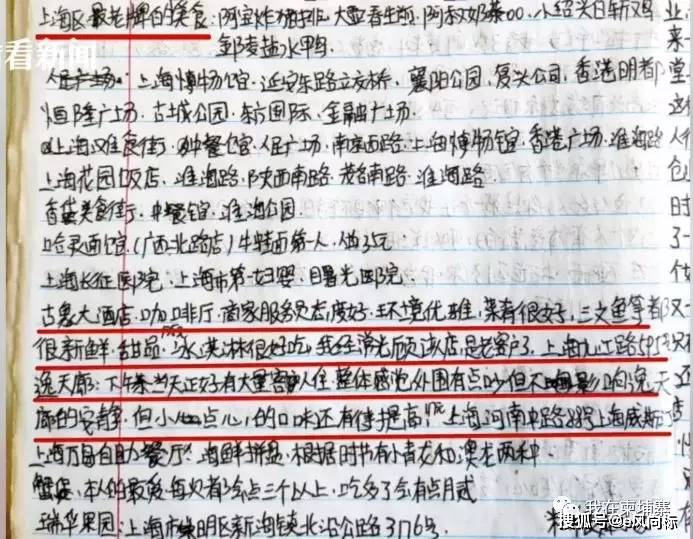 上海最老牌的美食：阿宝炸猪排、大壶春生煎、阿叔奶茶00、小绍兴白斩鸡
邹凌盐水鸭
看新闻
人民广场、上海博物馆、延安东路立交桥、襄阳公园、复兴公园、香港明都
恒隆广场、古城公园、东方国际、金融广场
上海美食街、中餐馆、人民广场、南京西路、上海博物馆、香港广场、淮海路
上海花园饭店、淮海路、陕西南路、茂名南路、淮海路
美食街、中餐馆、淮海公园
哈灵面馆（广西北路店）牛特面第一人、做25元
上海长征医院、上海市第一妇婴、曙光医院
古象大酒店、咖啡厅、商家服务员态度好、环境优雅、菜肴很好、三文鱼等都
很新鲜、甜品、冰淇淋很好吃、我经常光顾该店、是老客户了、上海九江路595号
逸天廊：下午茶当天正好有大量客人住、整体感觉外围有点吵但不影响逸天
廊的安静、但小点心的口味还有待提高、上海河南中路 上海威斯
上海万 自助餐厅：海鲜拼盘、根据时节有小青龙和澳龙两种
蟹 、本人的最爱、每次有 会点三个以上、吃多了会有点月式
瑞华果园：上海市崇明区新海镇北沿公路3176号
我在柬埔寨
搜狐号@风向标